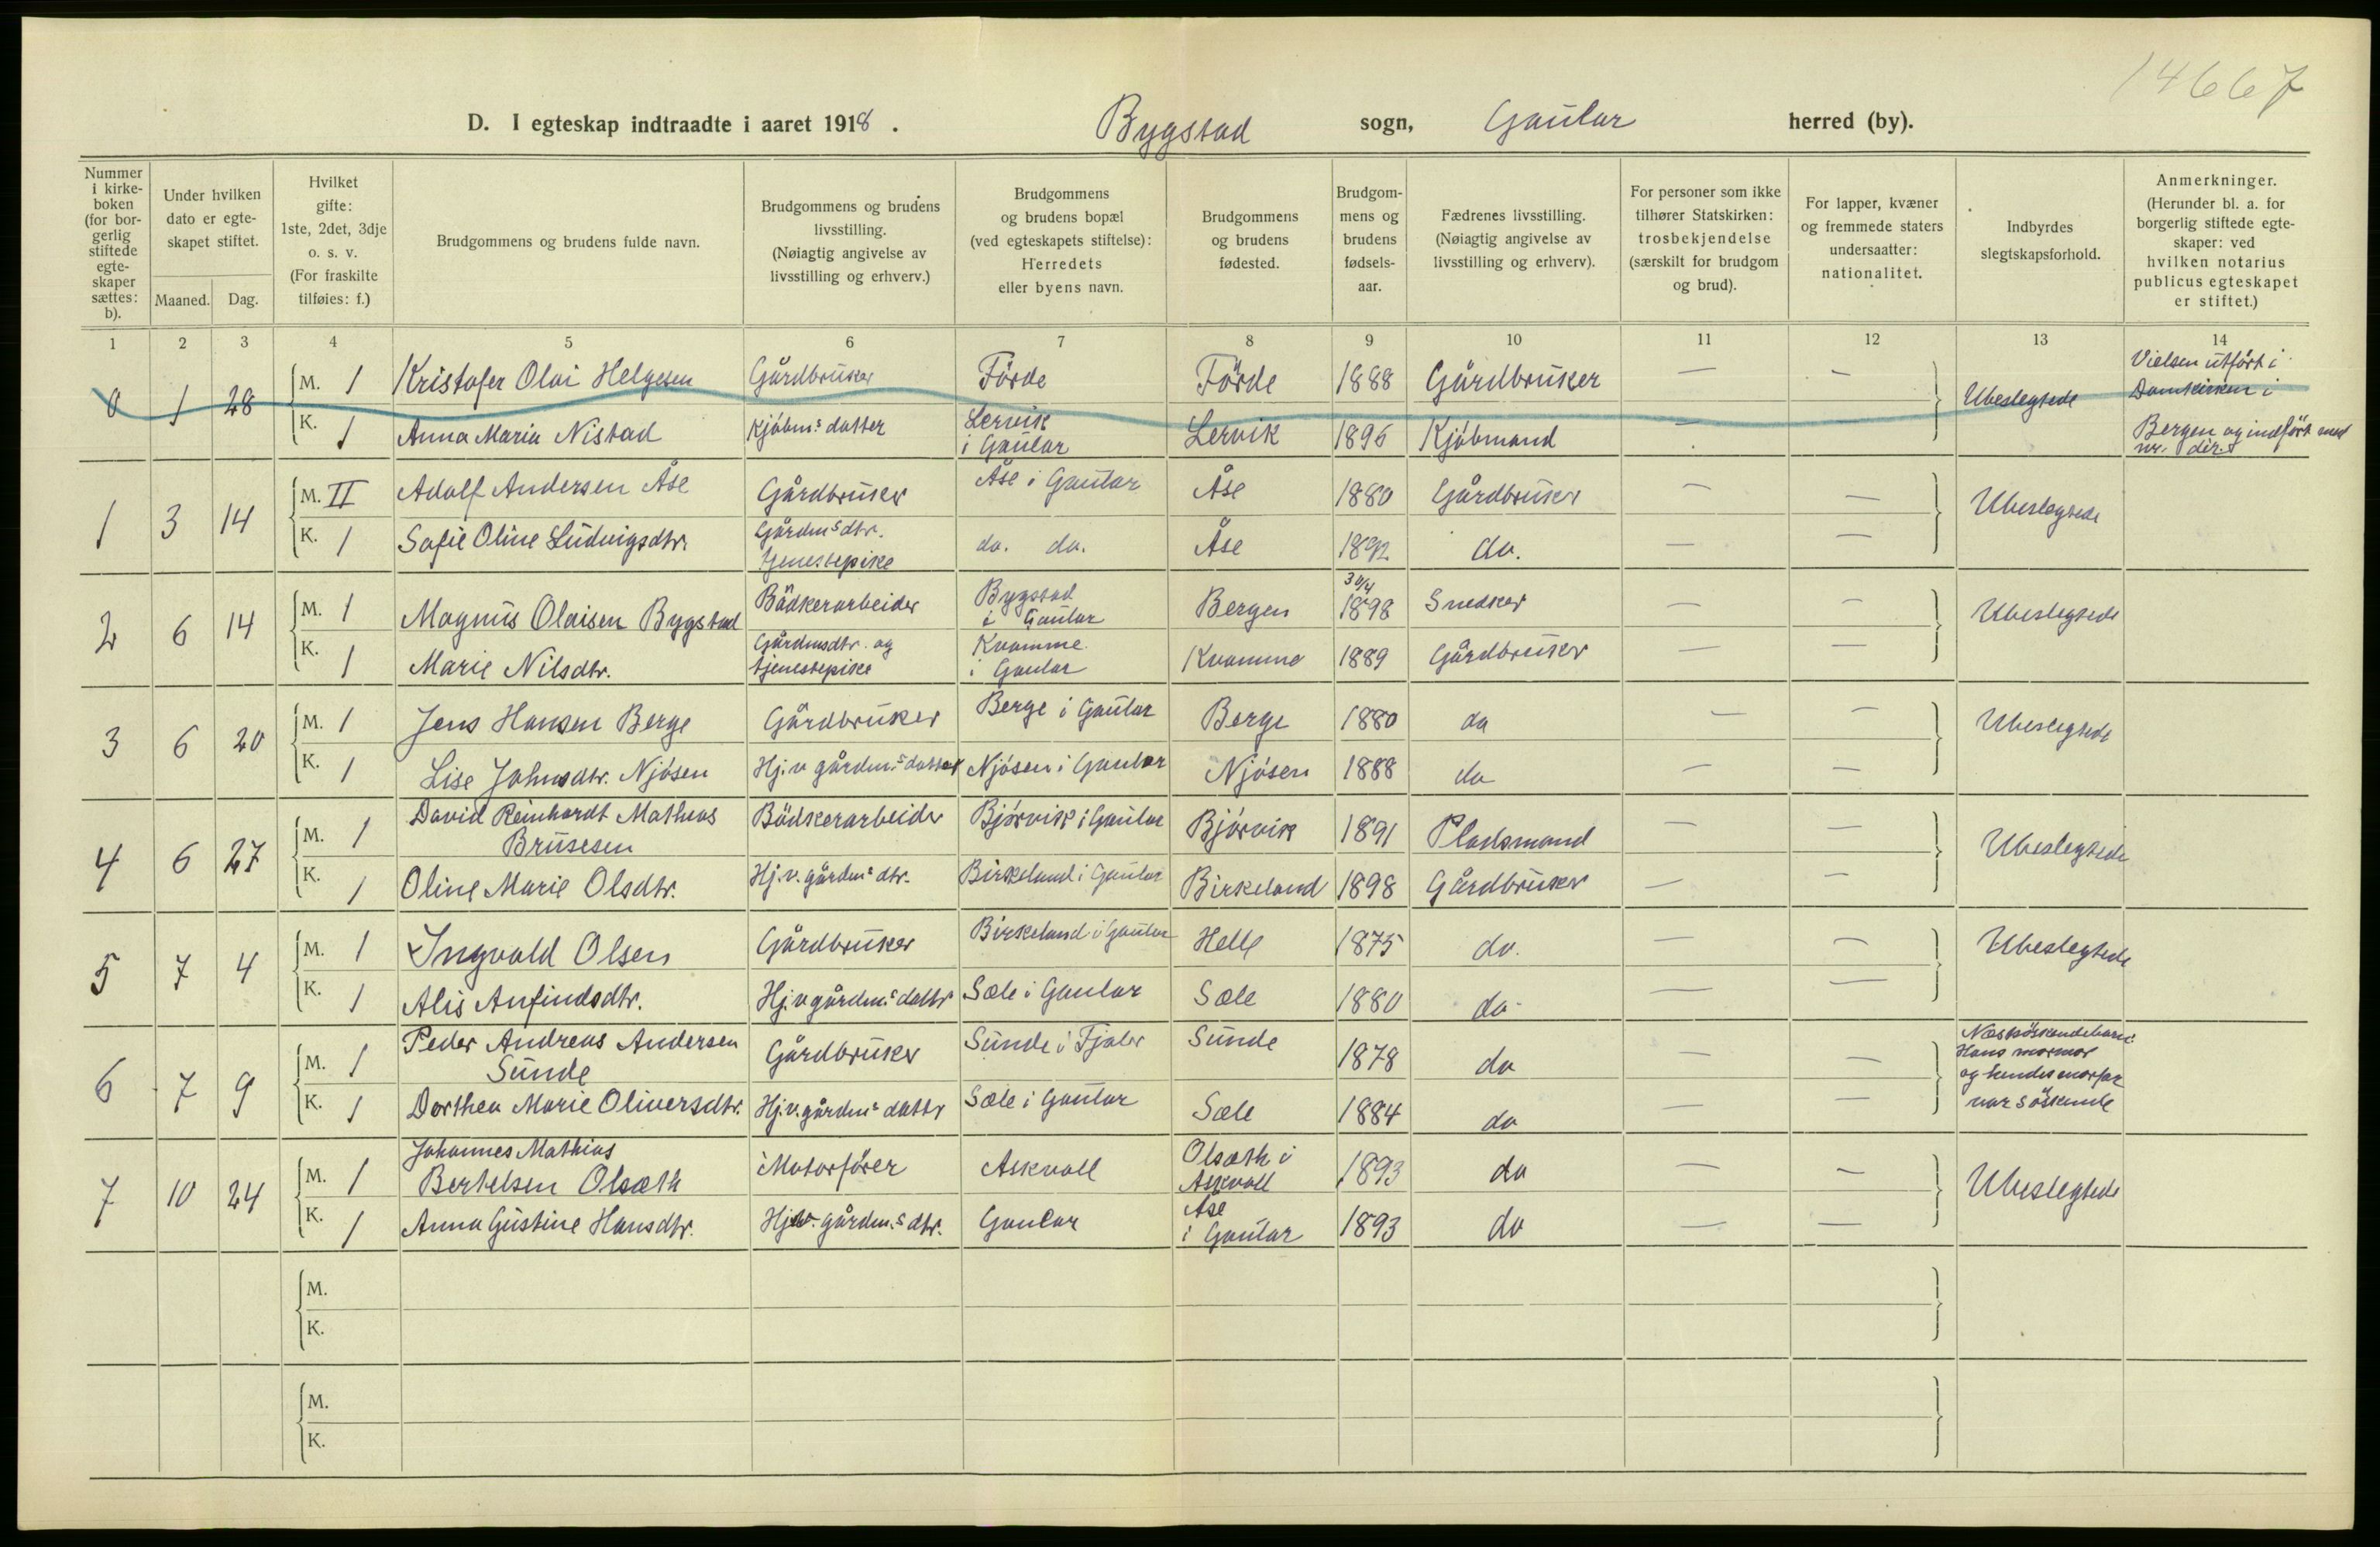 14667
D. I egteskap indtraadte i aaret 1918. Bygstad sogn, Gaular herred (by).
Nummer i kirke-boken (for bor-gerlig stiftede egte-skaper sættes: b).
Under hvilken dato er egte-skapet stiftet.
Maaned. Dag.
Hvilket gifte: 1ste, 2det, 3dje o. s. v. (For fraskilte tilføies: f.)
Brudgommens og brudens fulde navn.
Brudgommens og brudens livsstilling. (Nøiagtig angivelse av livsstilling og erhverv.)
Brudgommens og brudens bopæl (ved egteskapets stiftelse): Herredets eller byens navn.
Brudgommens og brudens fødested.
Brudgom-mens og brudens fødsels-aar.
Fædrenes livsstilling. (Nøiagtig angivelse av livsstilling og erhverv).
For personer som ikke tilhører Statskirken: trosbekjendelse (særskilt for brudgom og brud).
For lapper, kvæner og fremmede staters undersaatter: nationalitet.
Indbyrdes slegtskapsforhold.
Anmerkninger. (Herunder bl. a. for borgerlig stiftede egte-skaper: ved hvilken notarius publicus egteskapet er stiftet.)
1 2 3 4 5 6 7 8 9 10 11 12 13 14
0 1 28 M. 1 Kristofer Olai Helgesen Gårdbruker Förde Förde 1888 Gårdbruker — — Ubeslegtede Vielsen utført i Domkirken i Bergen og indført med nr. der.
K. 1 Anna Maria Nistad Kjøbm.s datter Lervik i Gaular Lervik 1896 Kjøbmand — —
1 3 14 M. II Adolf Andersen Åse Gårdbruker Åse i Gaular Åse 1880 Gårdbruker — — Ubeslegtede
K. 1 Sofie Oline Ludvigsdtr. Gårdmsdtr. tjenestepike do. do. Åse 1892 do. — —
2 6 14 M. 1 Magnus Olaisen Bygstad Bödkerarbeider Bygstad i Gaular Bergen 30/4 1898 Snedker — — Ubeslegtede
K. 1 Marie Nilsdtr. Gårdmsdtr. og tjenestepike Kvamme i Gaular Kvamme 1889 Gårdbruker — —
3 6 20 M. 1 Jens Hansen Berge Gårdbruker Berge i Gaular Berge 1880 do — — Ubeslegtede
K. 1 Lise Johnsdtr. Njøsen Hj.v gårdm.s datter Njøsen i Gaular Njøsen 1888 do — —
4 6 27 M. 1 David Reinhardt Mathias Brusesen Bödkerarbeider Bjørvik i Gaular Bjørvik 1891 Pladsmand — — Ubeslegtede
K. 1 Oline Marie Olsdtr. Hj.v. gårdm.s dtr. Birkeland i Gaular Birkeland 1898 Gårdbruker — —
5 7 4 M. 1 Ingvald Olsen Gårdbruker Birkeland i Gaular Helle 1875 do. — — Ubeslegtede
K. 1 Alis Anfindsdtr. Hj.v gårdm.s datter Sæle i Gaular Sæle 1880 do — —
6 7 9 M. 1 Peder Andreas Andersen Sunde Gårdbruker Sunde i Fjaler Sunde 1878 do — — Næstsöskendebarn: Hans mormor og hendes morfar var söskende
K. 1 Dorthea Marie Oliversdtr. Hj.v. gårdm.s datter Sæle i Gaular Sæle 1884 do — —
7 10 24 M. 1 Johannes Mathias Bertelsen Olsæth Motorfører Askvoll Olsæth i Askvoll 1893 do — — Ubeslegtede
K. 1 Anna Gustine Hansdtr. Hj.v. gårdm.s dtr. Gaular Åse i Gaular 1893 do — —
M.
K.
M.
K.